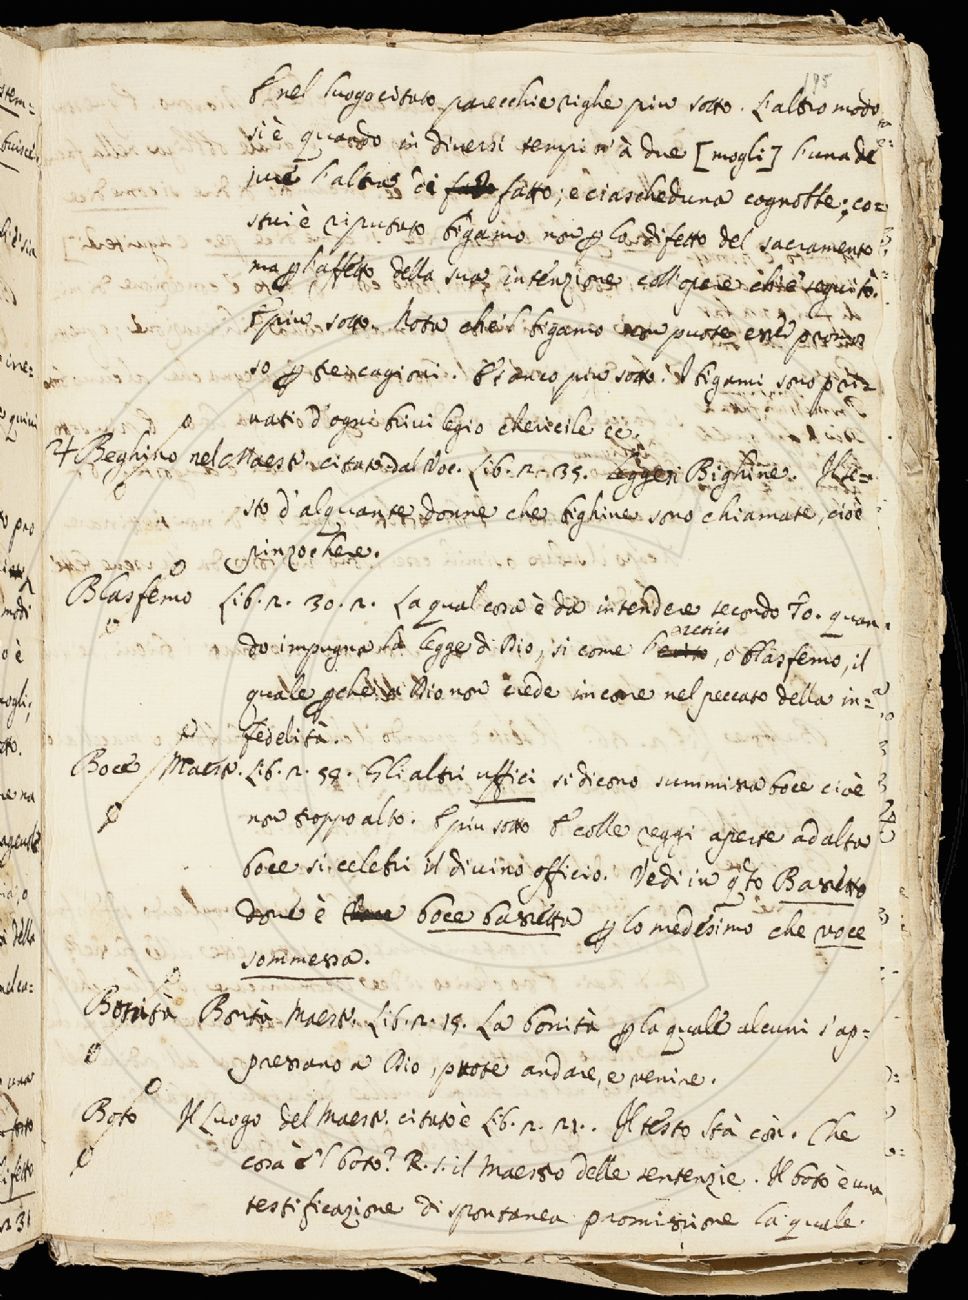 195
E nel luogo citato parecchie righe piu sotto. L'altro modo
si è quando in diversi tempi n'à due [mogli] l'una de
jure l'altra di fatto; e ciascheduna cognobbe; co=
stui è riputato bigamo non p lo difetto del sacramento
ma p l'affetto della sua intenzione coll'opere ch'è seguito.
E piu sotto. Nota che 'l bigamo non puote esse promos
so p tre cagioni. E anco piu sotto. I bigami sono pri=
vati d'ogni privilegio chericile &c.
Beghino nel Maestr. citato dal Voc. Lib. 2. 35. leggesi Bighine. Il te=
sto d'alquante donne che bighine sono chiamate, cioè
pinzochere.
Blasfemo Lib. 2. 30. 2. La qual cosa è da intendere secondo To. quan=
do impugna la legge di Dio, si come eretico, o blasfemo, il
quale pche a Dio non crede incorre nel peccato della in=
fedelità.
Boce Maestr. Lib. 2. 59. Gli altri uffici si dicono summissa boce cioè
non troppo alto. E piu sotto E colle reggi aperte ad alta
boce si celebri il divino officio. Vedi in qto Bassetto
dove è boce bassetta p lo medesimo che voce
sommessa.
Bonità Bontà Maestr. Lib. 2. 19. La bonità p la quale alcuni s'ap=
pressano a Dio, puote andare, e venire.
Boto Il Luogo del Maestr. citato è Lib. 2. 21. Il testo stà così. Che
cosa è 'l boto? R. s. il Maestro delle sentenzie. Il boto è una
testificazione di spontanea promissione la quale